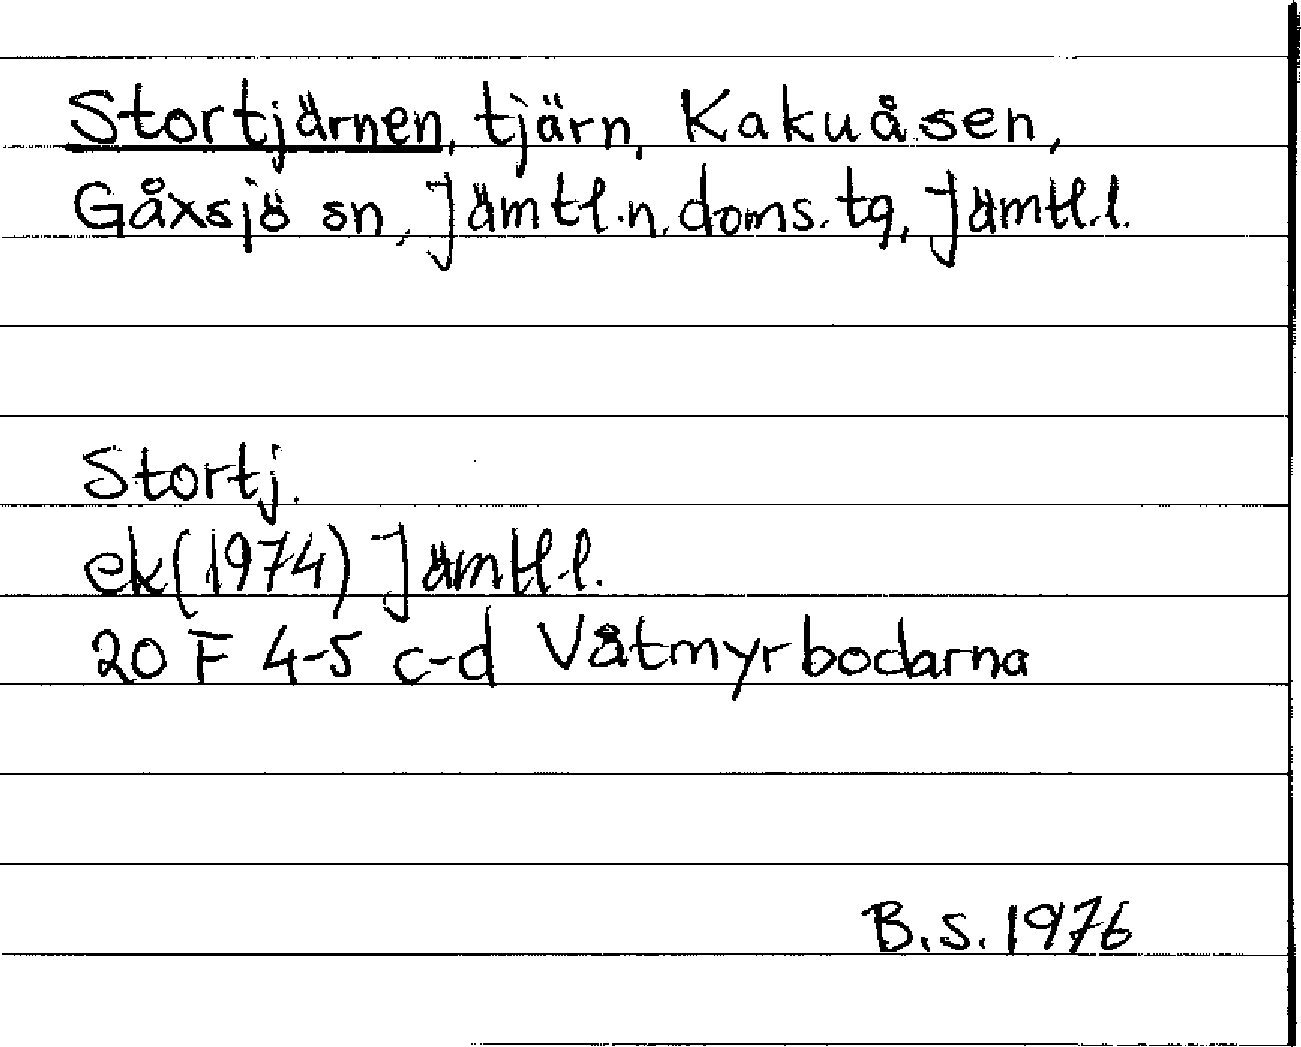 Stortjärnen, tjärn, Kakuåsen,
Gåxsjö sn, Jämtl.n. doms. tg, Jämtl.l.
Stortj.
ek(1974) Jämtl.l.
20 F 4-5 c-d Våtmyrbodarna
B.S. 1976